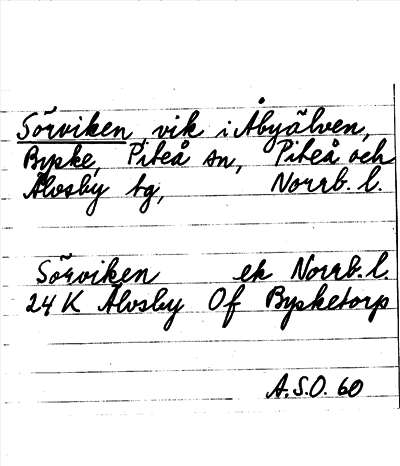 Sörviken, vik i Åbyälven,
Byske, Piteå sn, Piteå och
Älvsby tg, Norrb. l.
Sörviken ek Norrb. l.
24 K Älvsby Of Bysketorp
A.S.O. 60